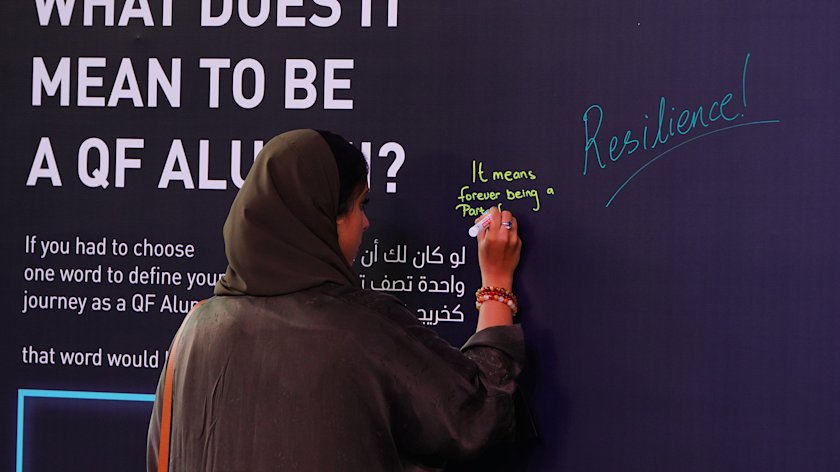 WHAT DOES IT
MEAN TO BE
A QF ALU I?
If you had to choose
one word to define your
journey as a QF Alu
that word would
لو كان لك أن
واحدة تصف
كخريج
It means
forever being a
Part of
Resilience!